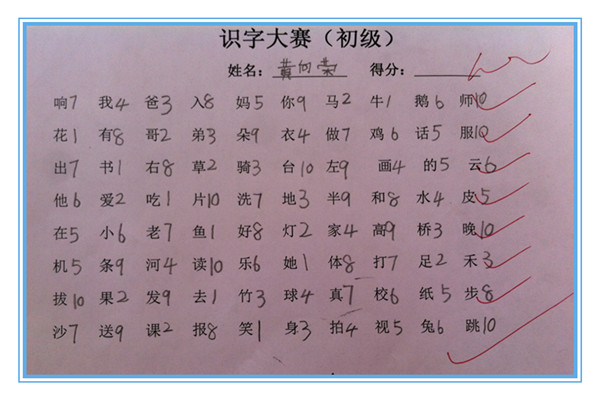 识字大赛（初级）
姓名：黄向荣 得分：
响7 我4 爸3 入8 妈5 你9 马2 牛1 鹅6 师10
花1 有8 哥2 弟3 朵9 衣4 做7 鸡6 话5 服10
出7 书1 右8 草2 骑3 台10 左9 画4 的5 云6
他6 爱2 吃1 片10 洗7 地3 半9 和8 水4 皮5
在5 小6 老7 鱼1 好8 灯2 家4 高9 桥3 晚10
机5 条9 河4 读10 乐6 她1 体8 打7 足2 禾3
拔10 果2 发9 去1 竹3 球4 真7 校6 纸5 步8
沙7 送9 课2 报8 笑1 身3 拍4 视5 兔6 跳10